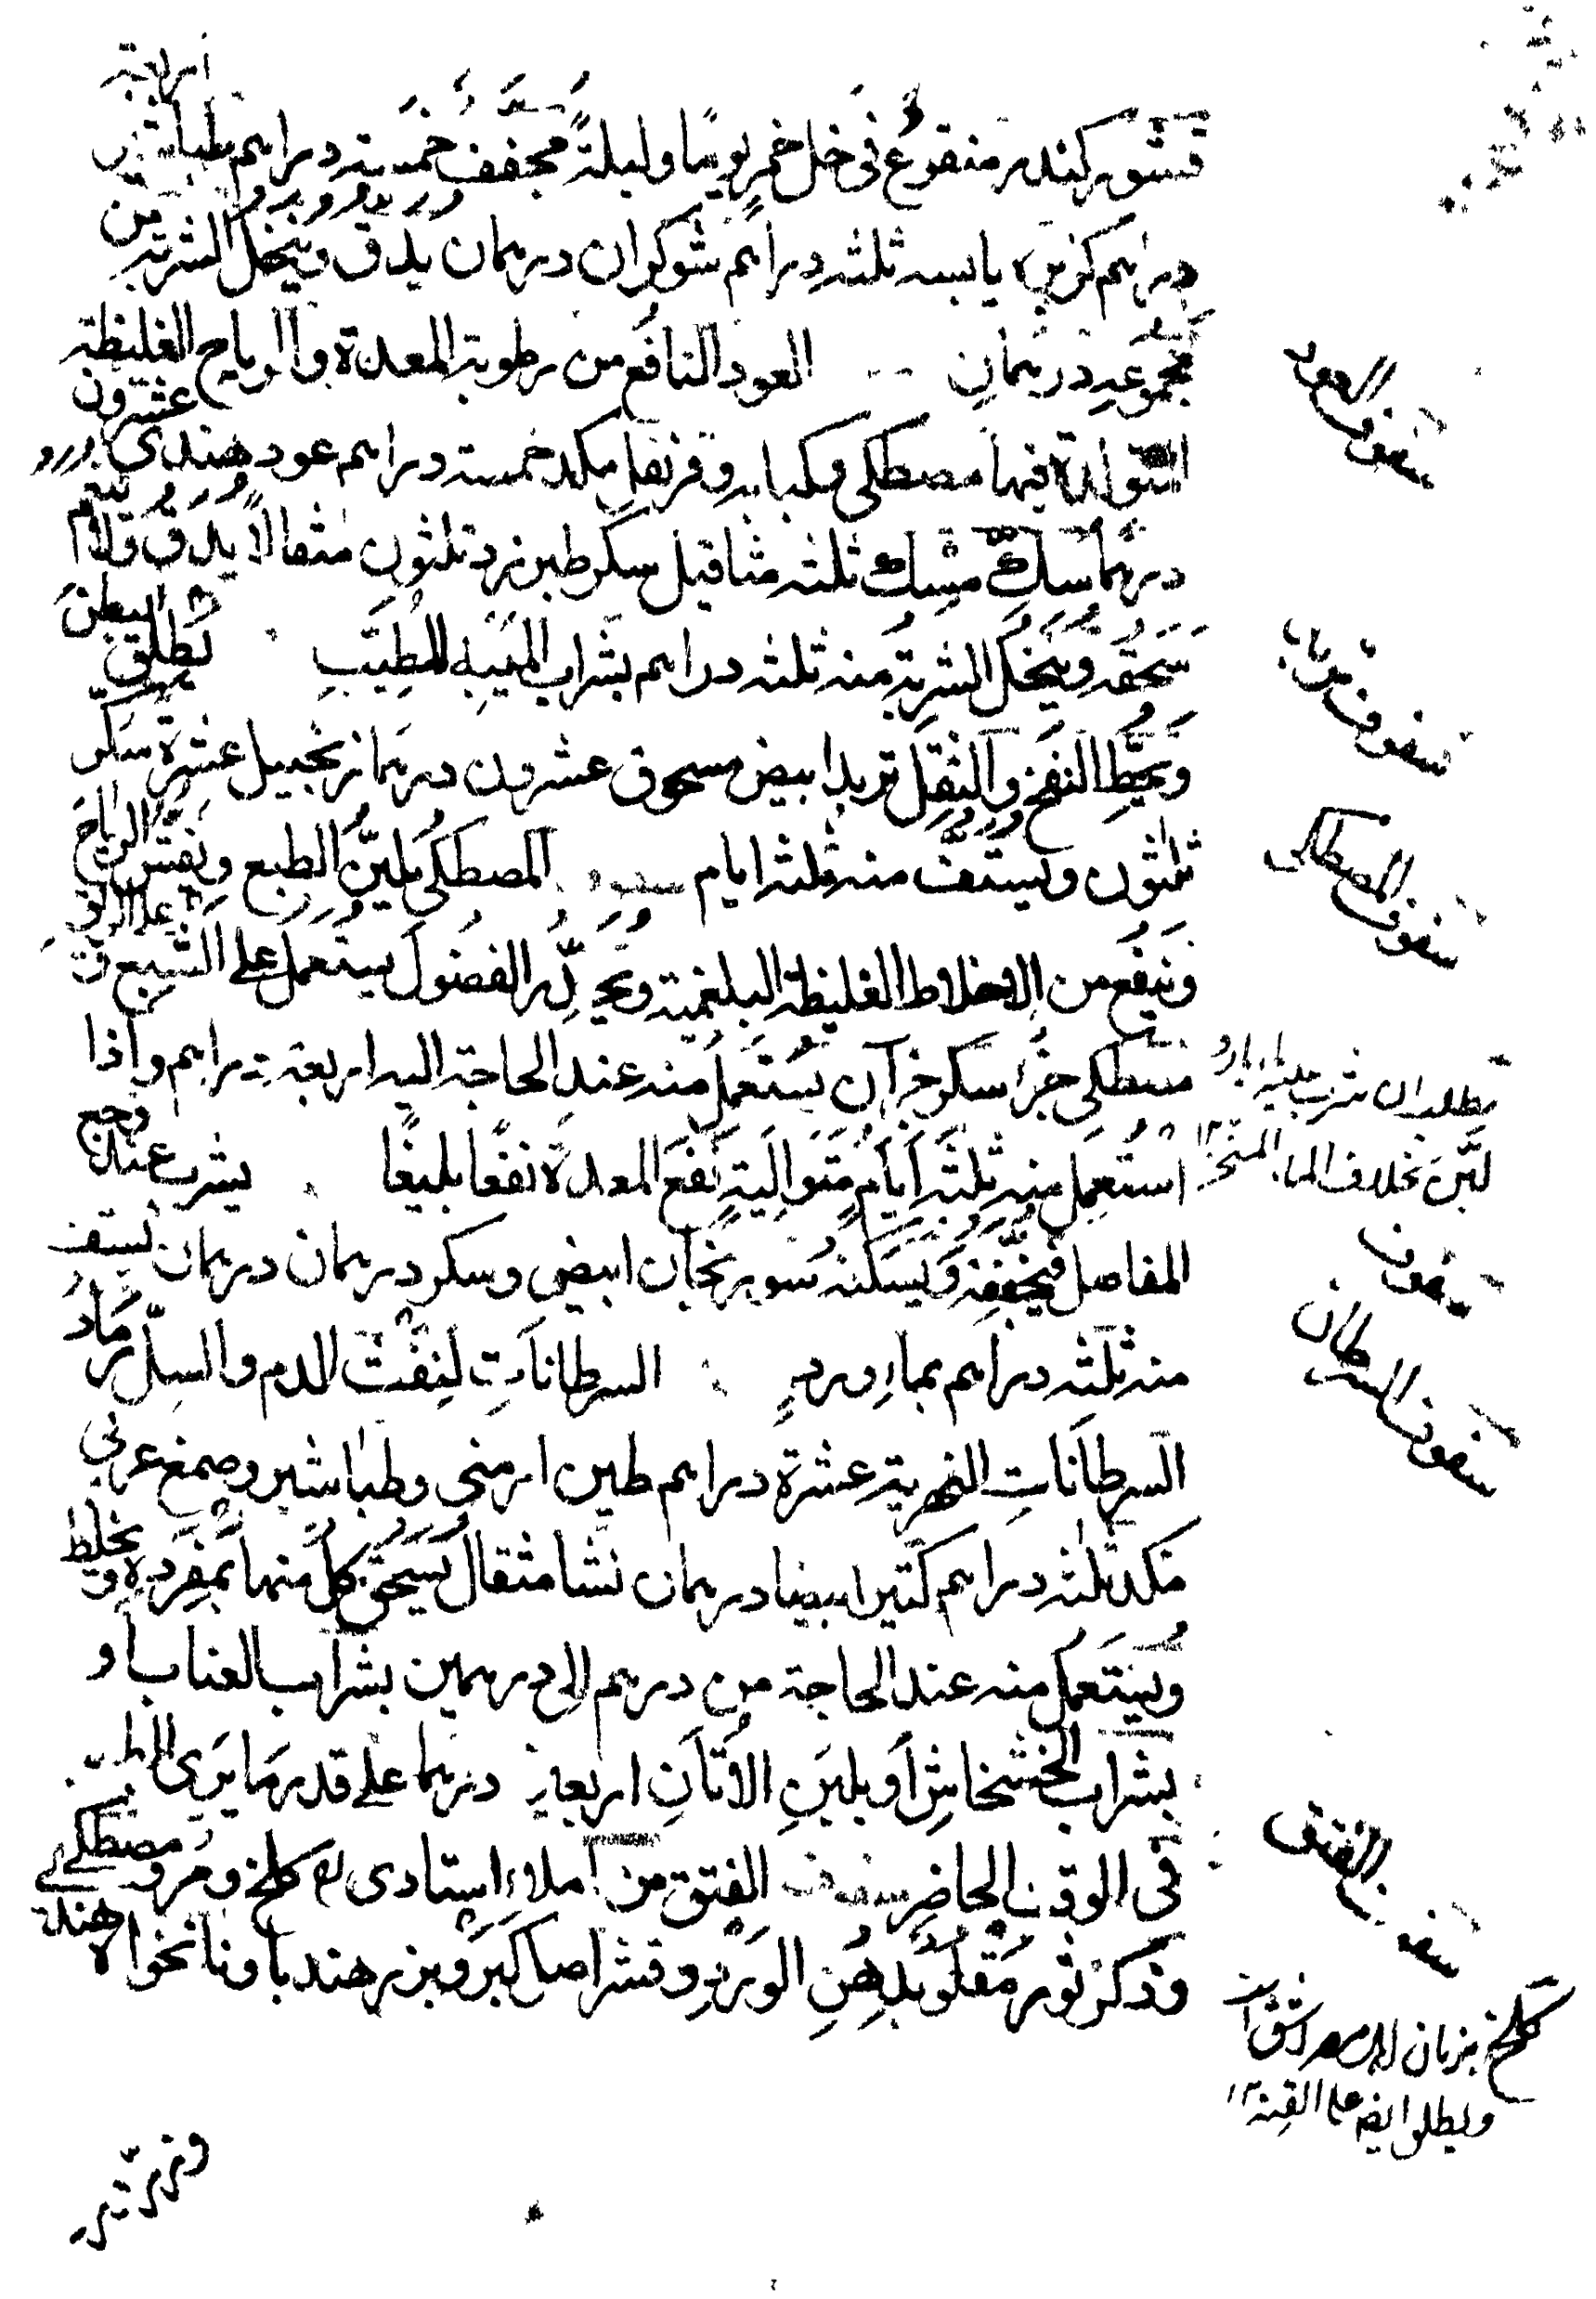 قشور كندر منقوعٌ فى خل خمرٍ يومًا وليلةً مجففٌ خمسة دراهم طباشير اربعة
دراهم كزبرة يابسه ثلثه دراهم شوكران درهمان يدق وينخل الشربة من
مجموعه درهمان العود النافع من رطوبة المعدة والرياح الغليظة
المتولدة فيها مصطكى وكبابه وقرنفل مكد خمسة دراهم عود هندى عشرون
درهما سك مسك ثلثه مثاقيل سكر طبرزد ثلثون مثقالا يدق ولا ينعم
سحقه وينخل الشربة منه ثلثه دراهم بشراب الميبه المطيب يطلق البطن
ويحط النفخ والثقل تربد ابيض مسحوق عشرون درهما زنجبيل عشرة سكر
ثلثون ويستف منه ثلثه ايام المصطكى يلين الطبع ويفش الرياح
وينفع من الاخلاط الغليظة البلغمية ويحدر الفضول يستعمل على الشبع وعلى الريق
مصطكى جزا سكر جزآن يستعمل منه عند الحاجة اليه اربعة دراهم واذا
استعمل منه ثلثه ايام متوالية نفع المعدة نفعا بليغا يشرب عند وجع
المفاصل فيخففه ويسكنه سورنجان ابيض وسكر درهمان درهمان يستف
منه ثلثه دراهم بماء ورد السرطانات لنفث الدم والسل رماد
السرطانات النهرية عشرة دراهم طين ارمنى وطباشير وصمغ عربى
مكد ثلثه دراهم كثيرا بيضا درهمان نشا مثقال يسحق كل منها بمفرده ويخلط
ويستعمل منه عند الحاجة من درهم الى درهمين بشراب العناب او
بشراب الخشخاش او بلبن الاتان اربعين درهما على قدر ما يرى الطبيب
فى الوقت الحاضر سفوف الفتق من املاء استادى كلخ ومر ومصطكى
وذكر ثور مقلو بدهن الورد وقشر اصل كبر وبزر هندبا ونانخواه هندية
سفوف العود
سفوف
سفوف المصطكى
ان شرب عليه الماء البارد
لين بخلاف الماء المسخن
سفوف
سفوف السرطان
سفوف الفتق
كلخ بزبان اشق است
ويطلق ايضا على القنه ١٢